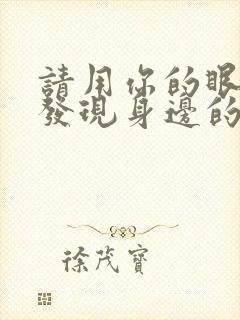 請用你的眼
發現身邊的
徐茂寶